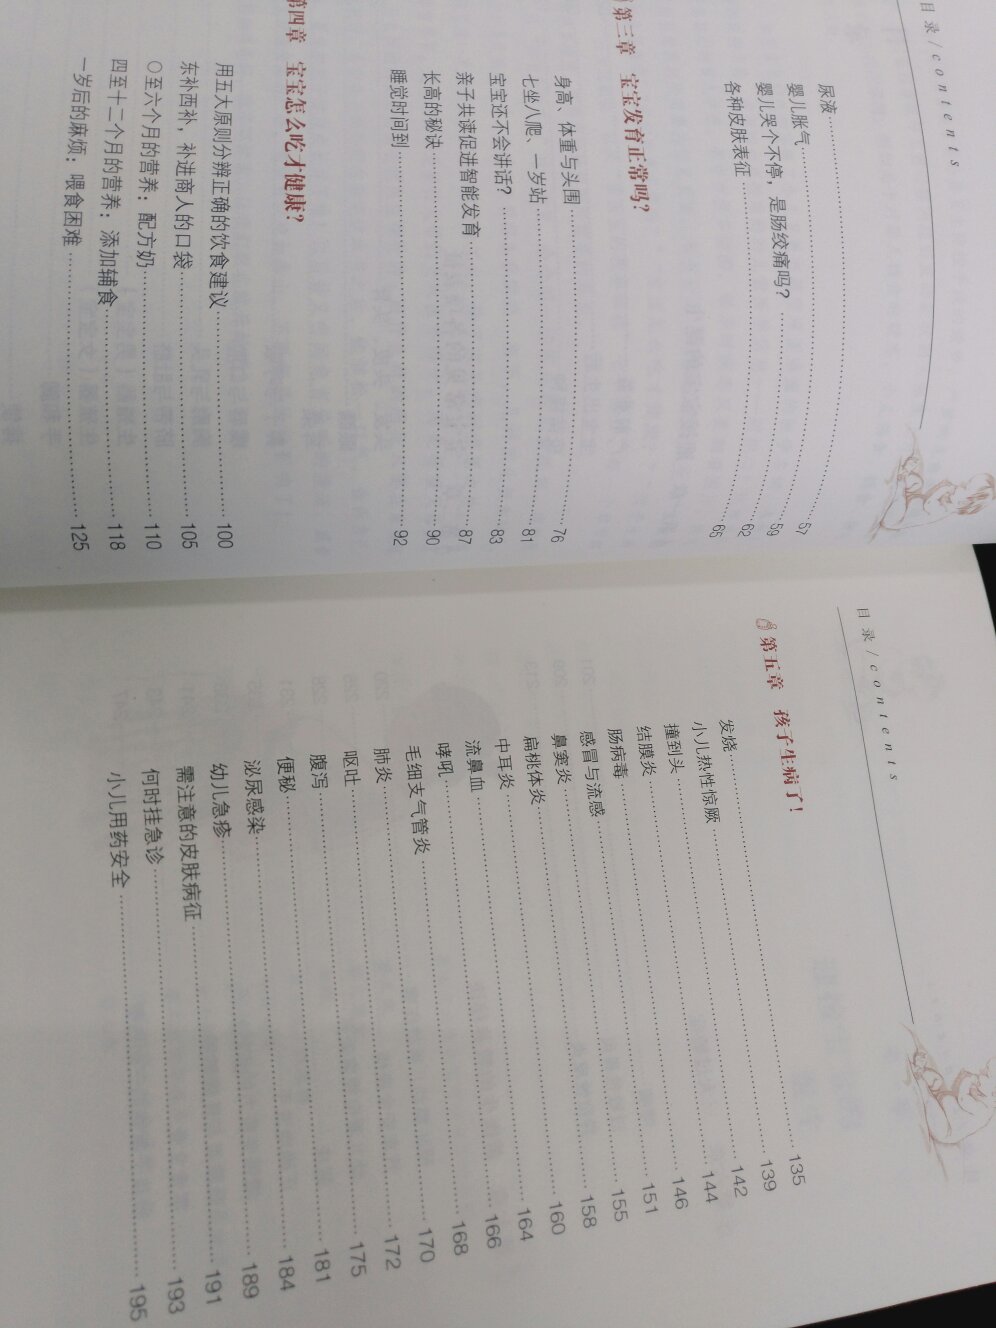 目录/contents
尿液 57
婴儿胀气 59
婴儿哭个不停，是肠绞痛吗？ 62
各种皮肤表征 65
第三章 宝宝发育正常吗？
身高、体重与头围 76
七坐八爬、一岁站 81
宝宝还不会讲话？ 83
亲子共读促进智能发育 87
长高的秘诀 90
睡觉时间到 92
第四章 宝宝怎么吃才健康？
用五大原则分辨正确的饮食建议 100
东补西补，补进商人的口袋 105
○至六个月的营养：配方奶 110
四至十二个月的营养：添加辅食 118
一岁后的麻烦：喂食困难 125
目录/contents
第五章 孩子生病了！
发烧 135
小儿热性惊厥 139
撞到头 142
结膜炎 144
肠病毒 146
感冒与流感 151
鼻窦炎 155
扁桃体炎 158
中耳炎 160
流鼻血 164
哮吼 166
毛细支气管炎 168
肺炎 170
呕吐 172
腹泻 175
便秘 181
泌尿感染 184
幼儿急疹 189
需注意的皮肤病征 191
何时挂急诊 193
小儿用药安全 195